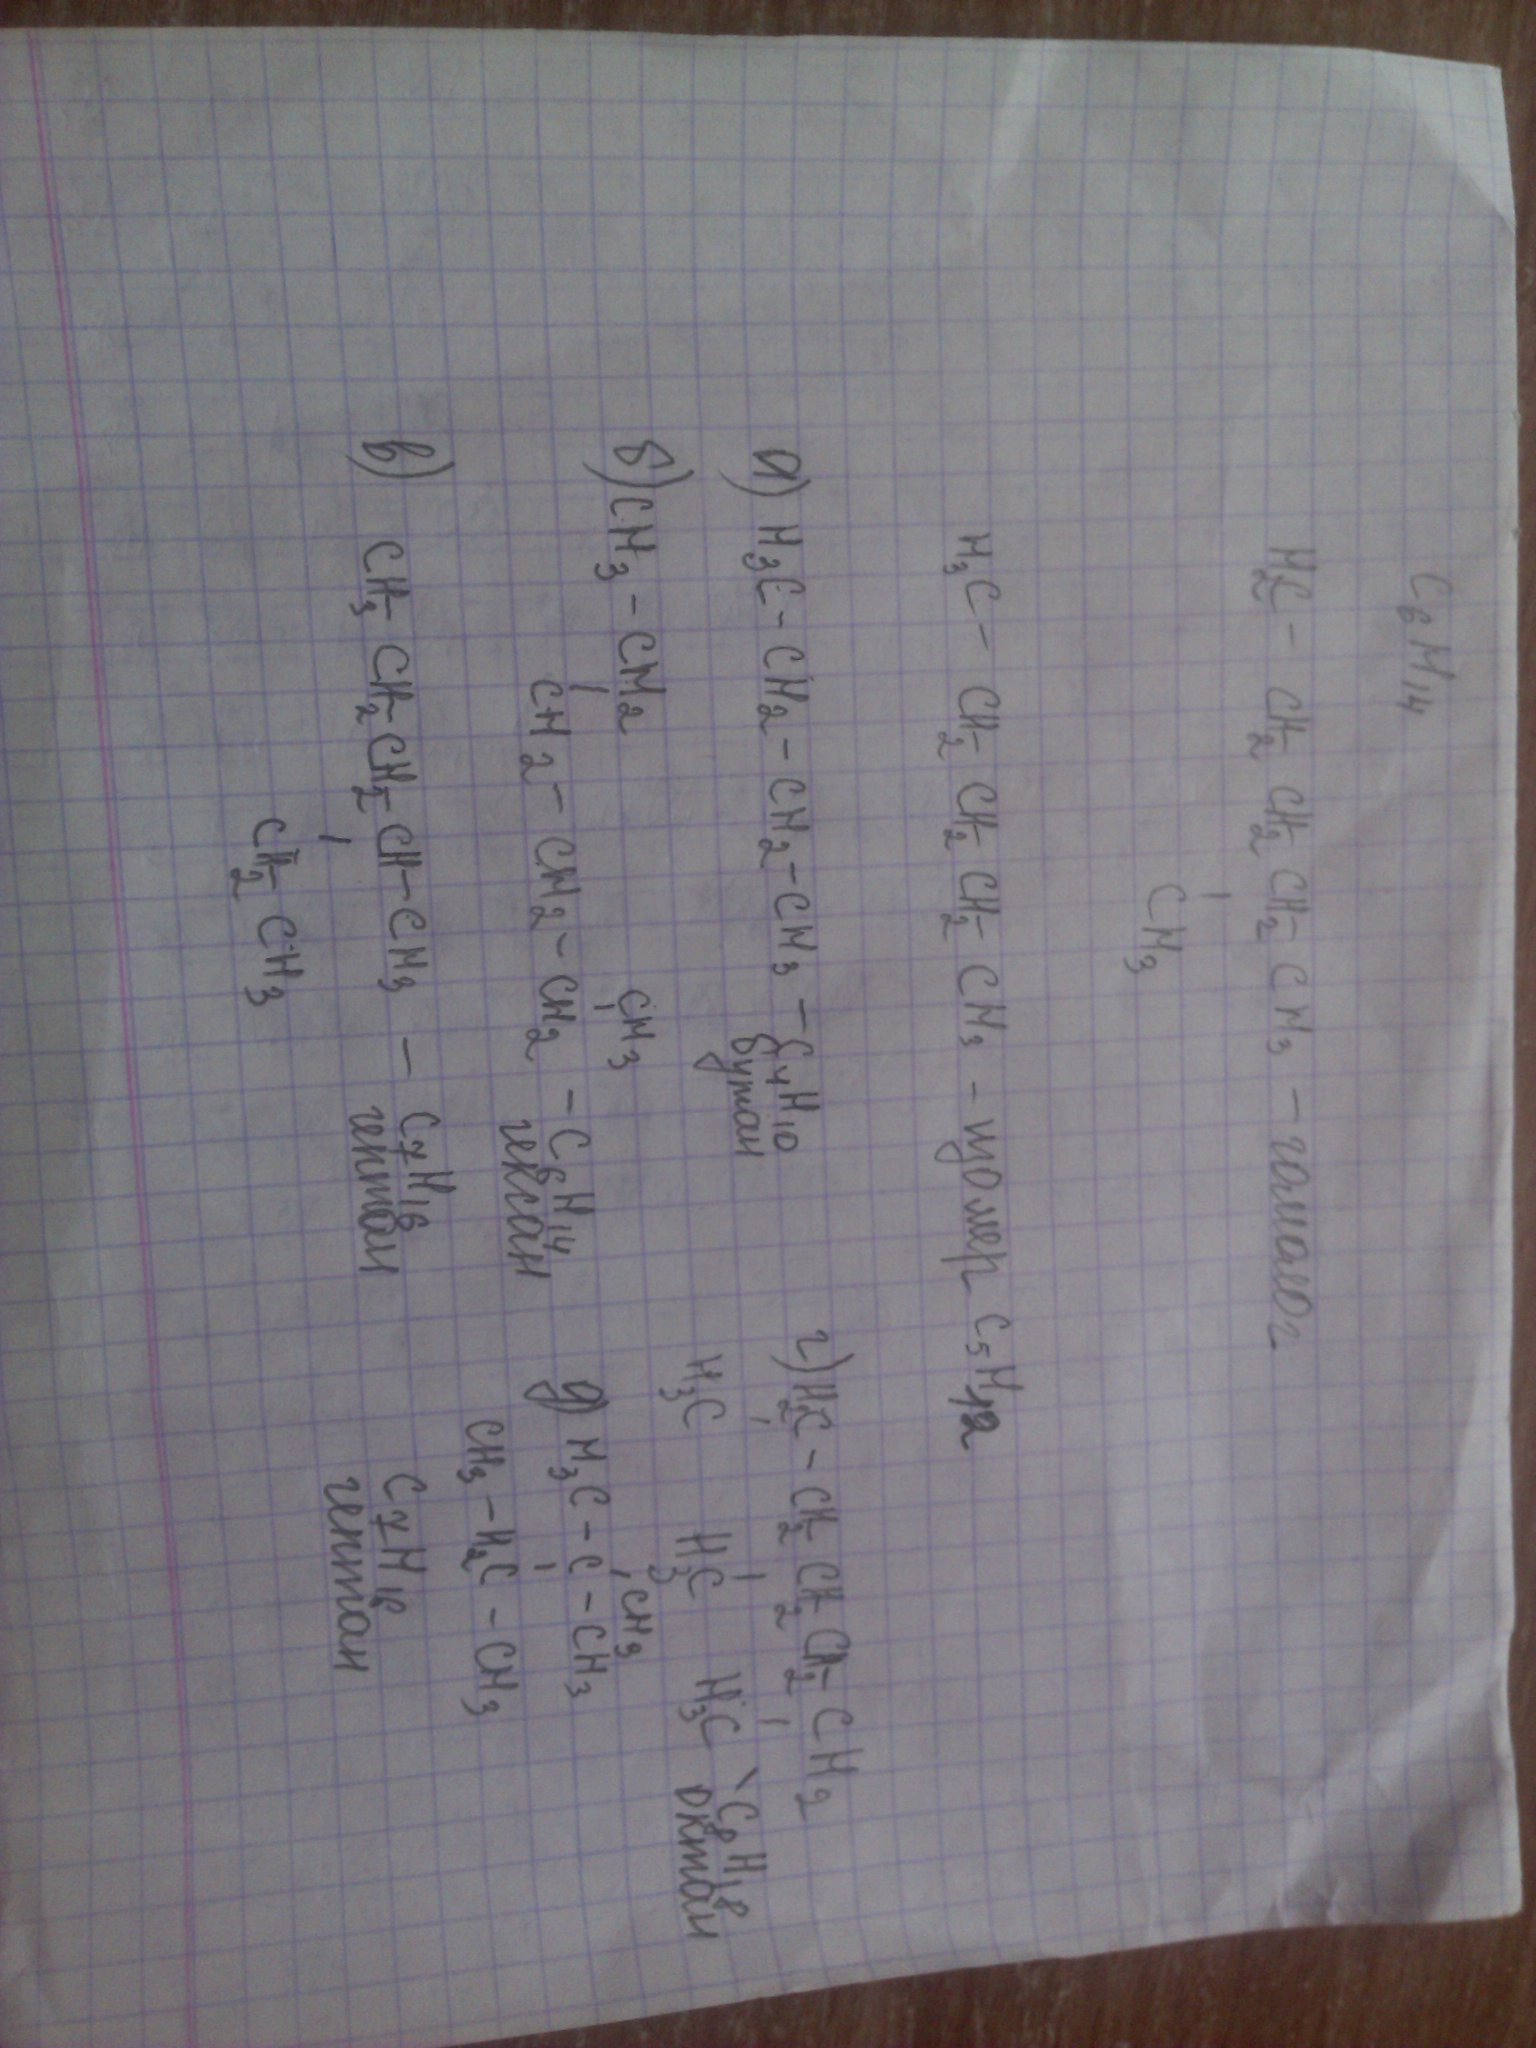 C6H14
H2C - CH2 - CH2 - CH2 - CH3 - гомолог
CH3
H3C - CH2 - CH2 - CH2 - CH3 - изомер C5H12
а) H3C - CH2 - CH2 - CH3 - C4H10
бутан
б) CH3 - CH2
CH3
CH2 - CH2 - CH2 - C6H14
гексан
в) CH3 - CH2 - CH2 - CH - CH3 - C7H16
гептан
CH2 - CH3
г) H2C - CH2 - CH2 - CH2 - CH2
H3C H3C H3C - C8H18
октан
д) H3C - C - CH3
CH3
CH3 - H2C - CH3
C7H18
гептан